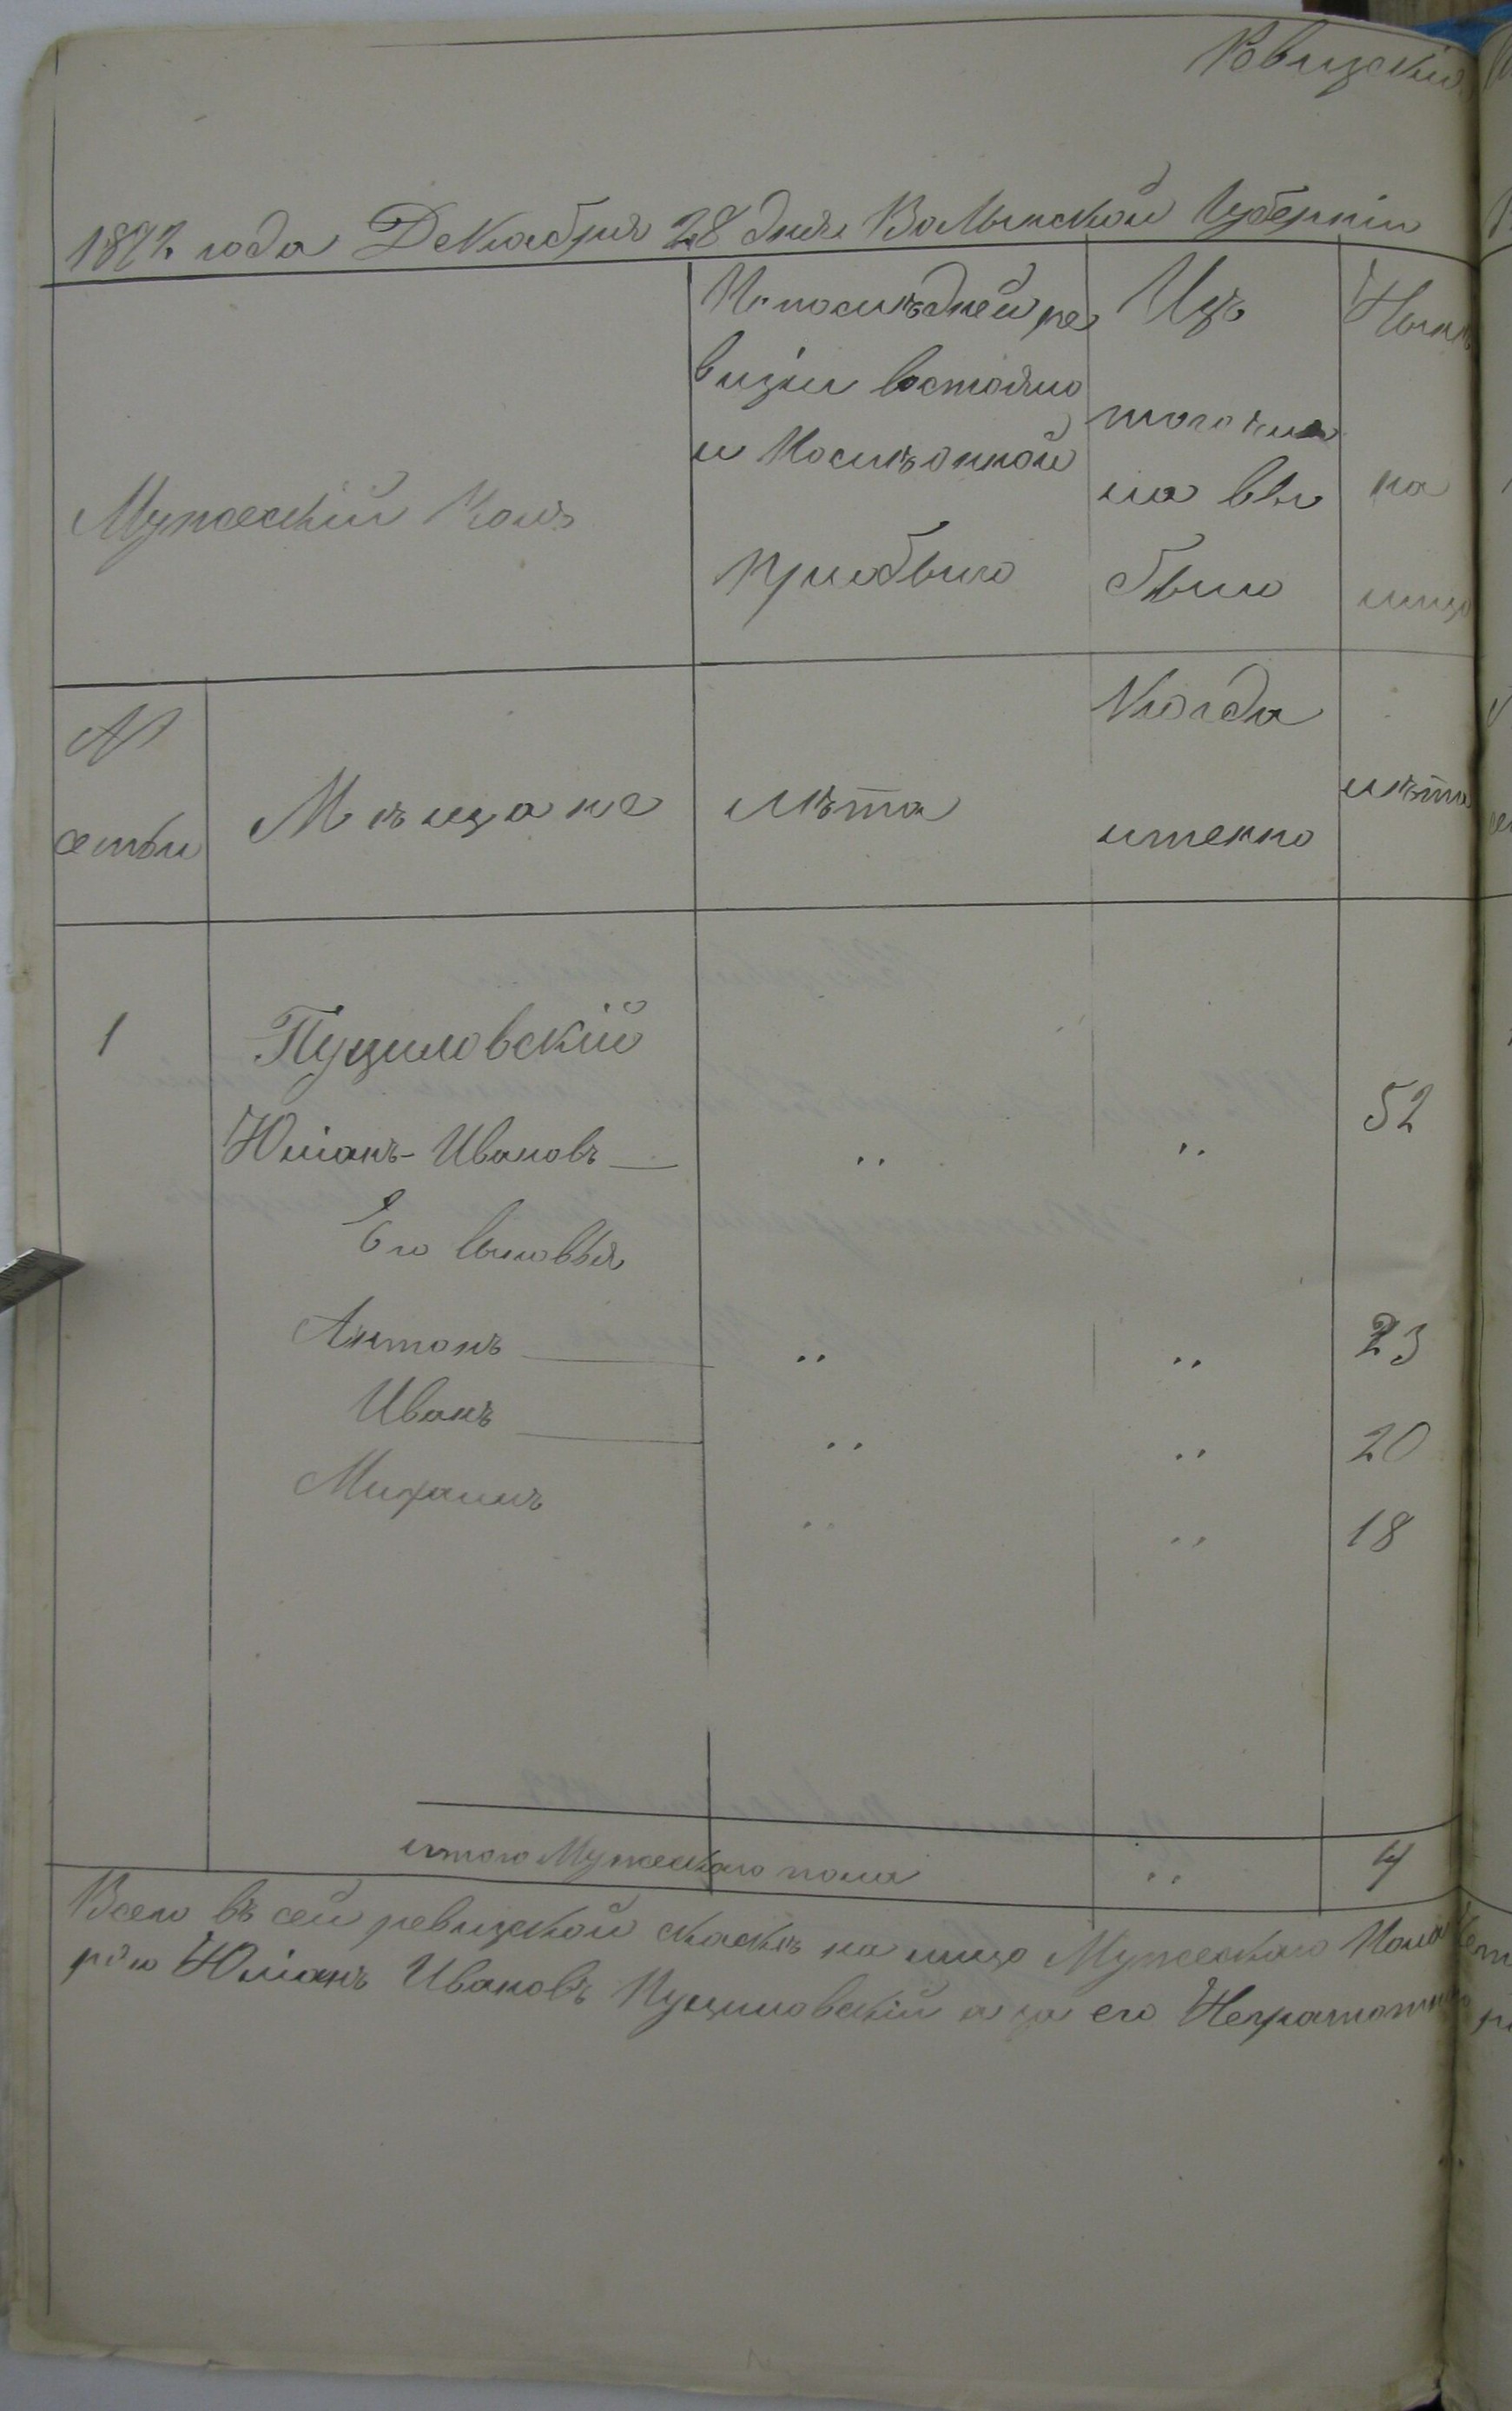 Ревизскія
1872 года Декабря 28 дня Волынской Губерніи
Мужескій Полъ
По послѣдней ре
визіи состояло
и Послѣ оной
прибыло
Изъ
того числа
вы
было
Нынѣ
на
лицо
№
семьи
Мѣщане
лѣта
Когда
именно
лѣта
1
Пуциловскій
Юліанъ-Ивановъ " " 52
Его сыновья
Антонъ " " 23
Иванъ " " 20
Михаилъ " " 18
итого Мужескаго пола " 4
Всего въ сей ревизской сказкѣ на лицо Мужескаго Пола
Юліанъ Ивановъ Пуциловскій а за его Неграмотн